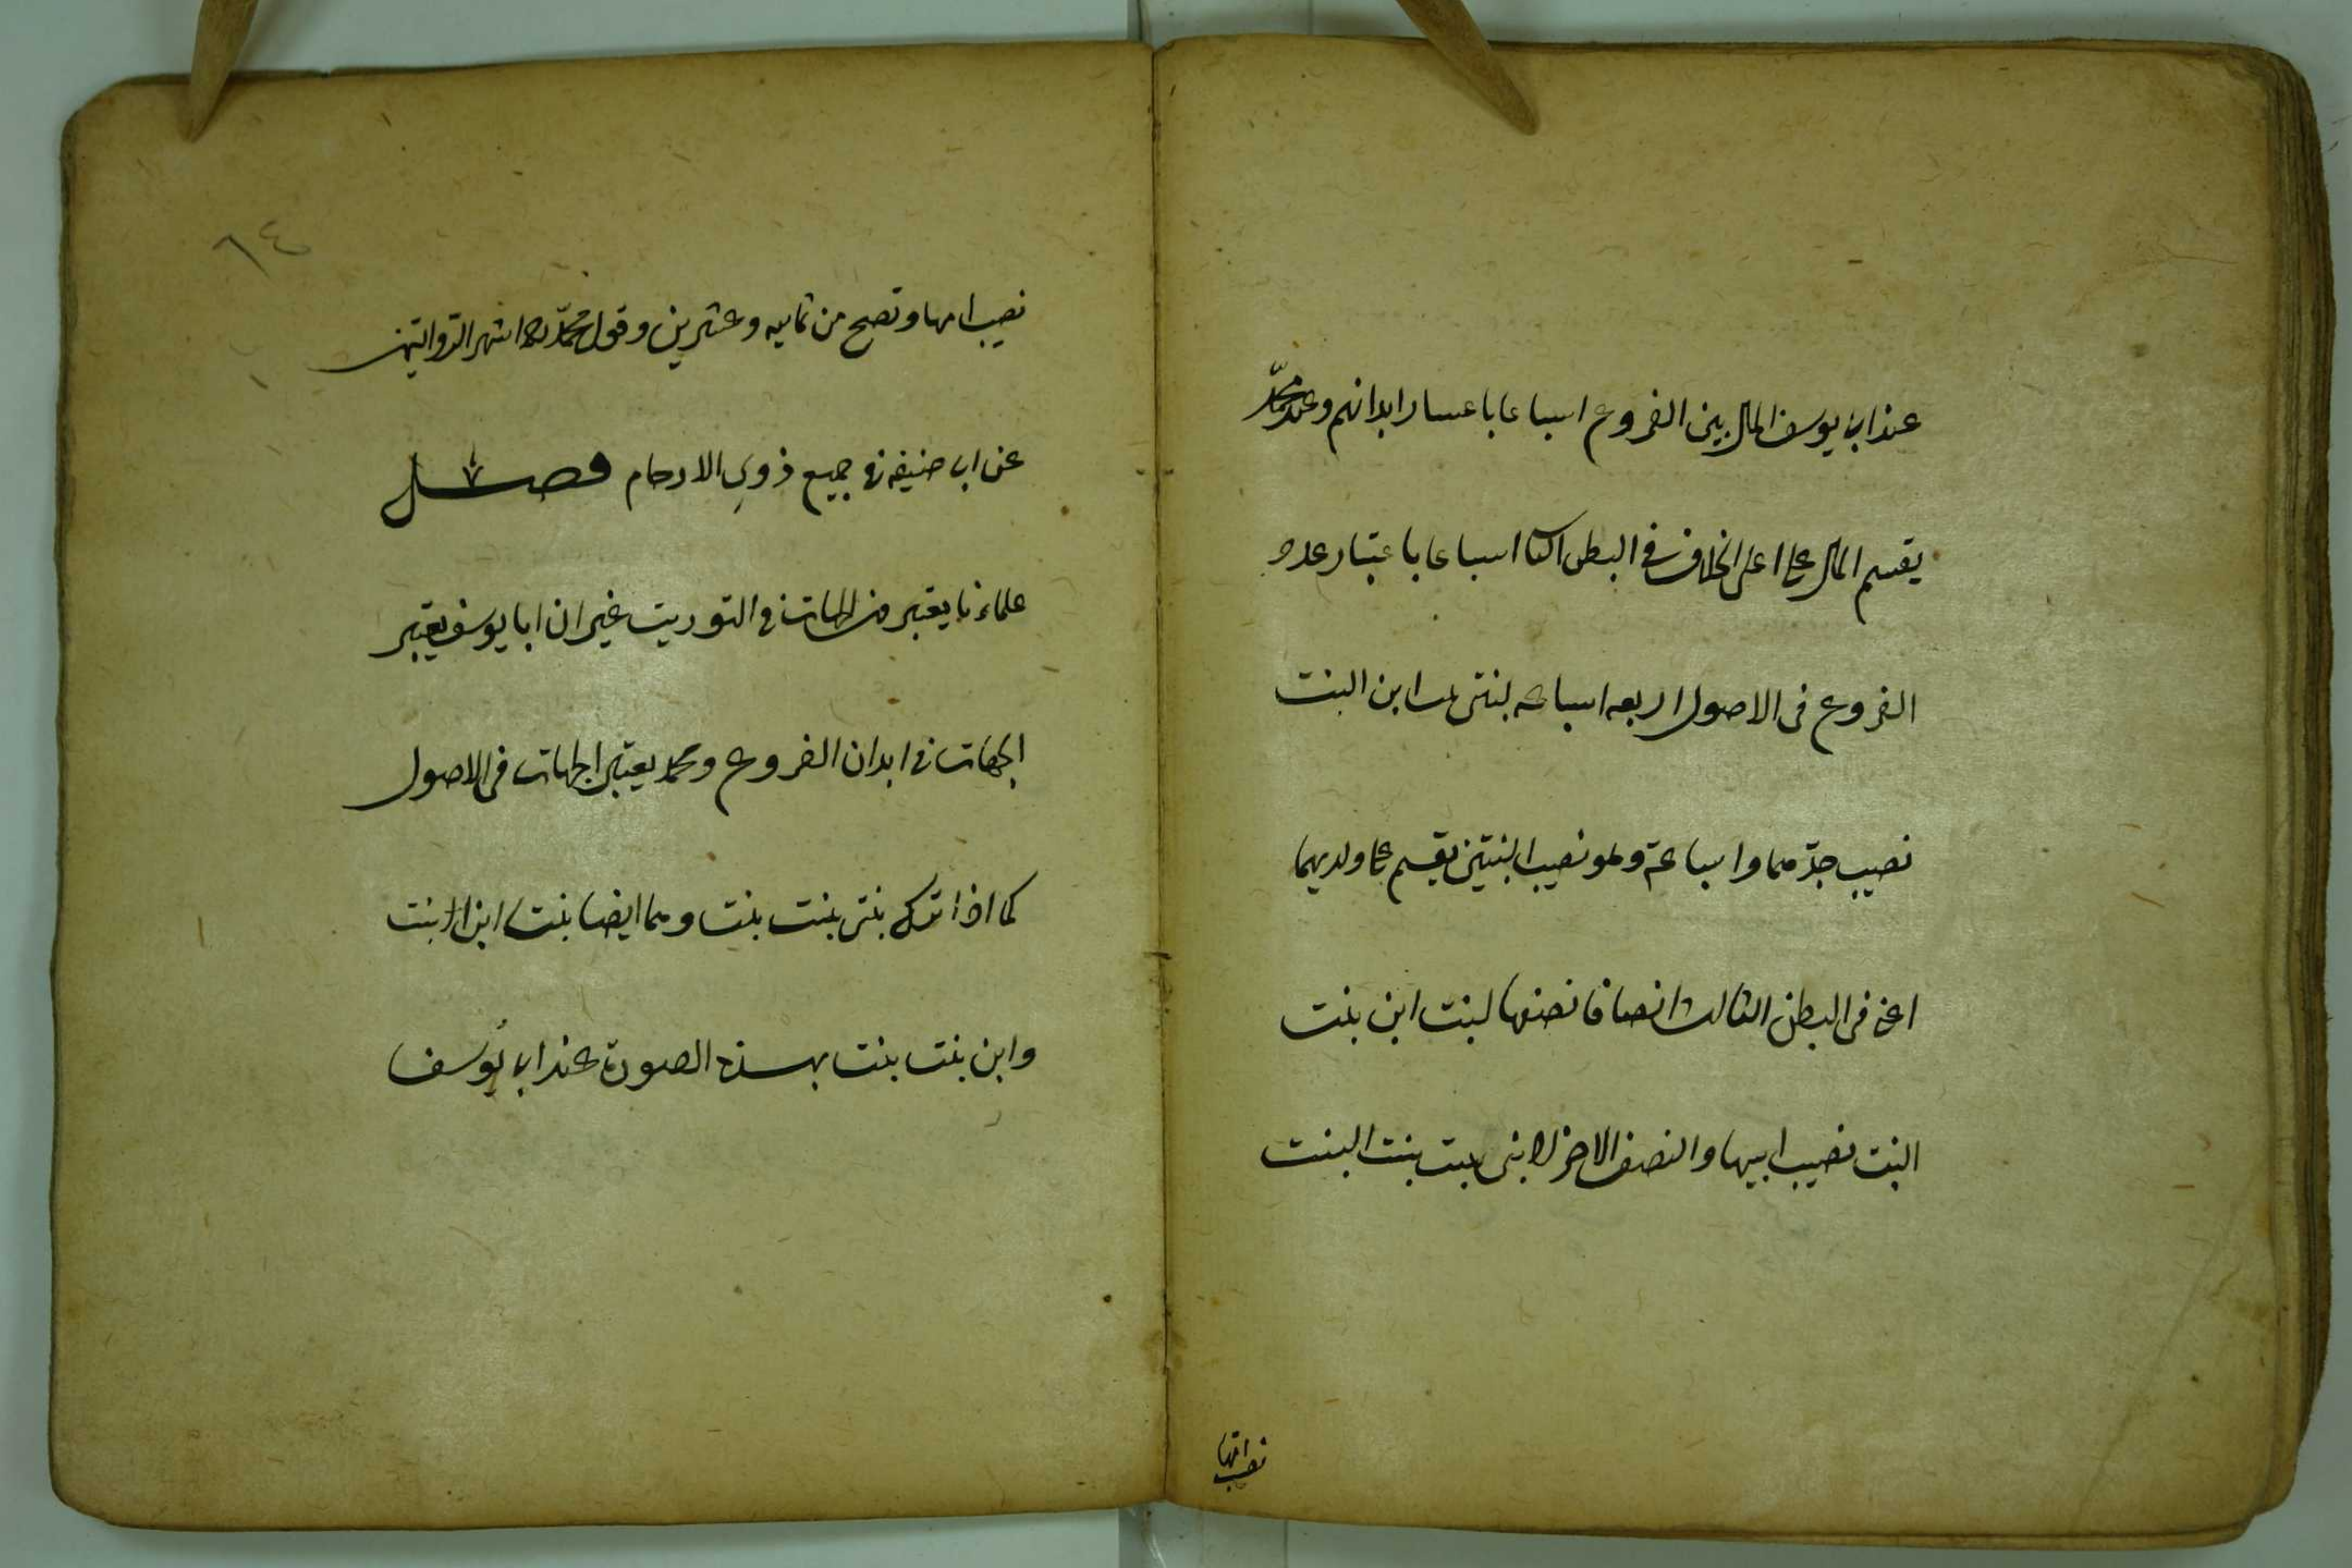 عند ابى يوسف المال بين الفروع اسباعا باعتبار ابدانهم وعند محمّد
يقسم المال على اعلى الخلاف فى البطن الثانى اسباعا باعتبار عدد
الفروع فى الاصول اربعه اسباعه لبنتى بنت ابن البنت
نصيب جدّهما و اسباعه وهو نصيب البنتين يقسم على ولديهما
اعنى فى البطن الثالث انصافا نصفها لبنت ابن بنت
البنت نصيب ابيها والنصف الاخر لابنى بنت بنت البنت
نصيب امّها
٦٤
نصيب امها وتصح من ثمانيه وعشرين وقول محمّد رح اشهر الرّوايتين
عن ابى حنيفه فى جميع ذوى الارحام فصل
علماءنا يعتبرون الجهات فى التوريث غير ان ابا يوسف يعتبر
الجهات فى ابدان الفروع ومحمد يعتبر الجهات فى الاصول
كما اذا ترك بنتى بنت بنت وهما ايضا بنتا ابن بنت
وابن بنت بنت بهذه الصورة عند ابى يُوسف